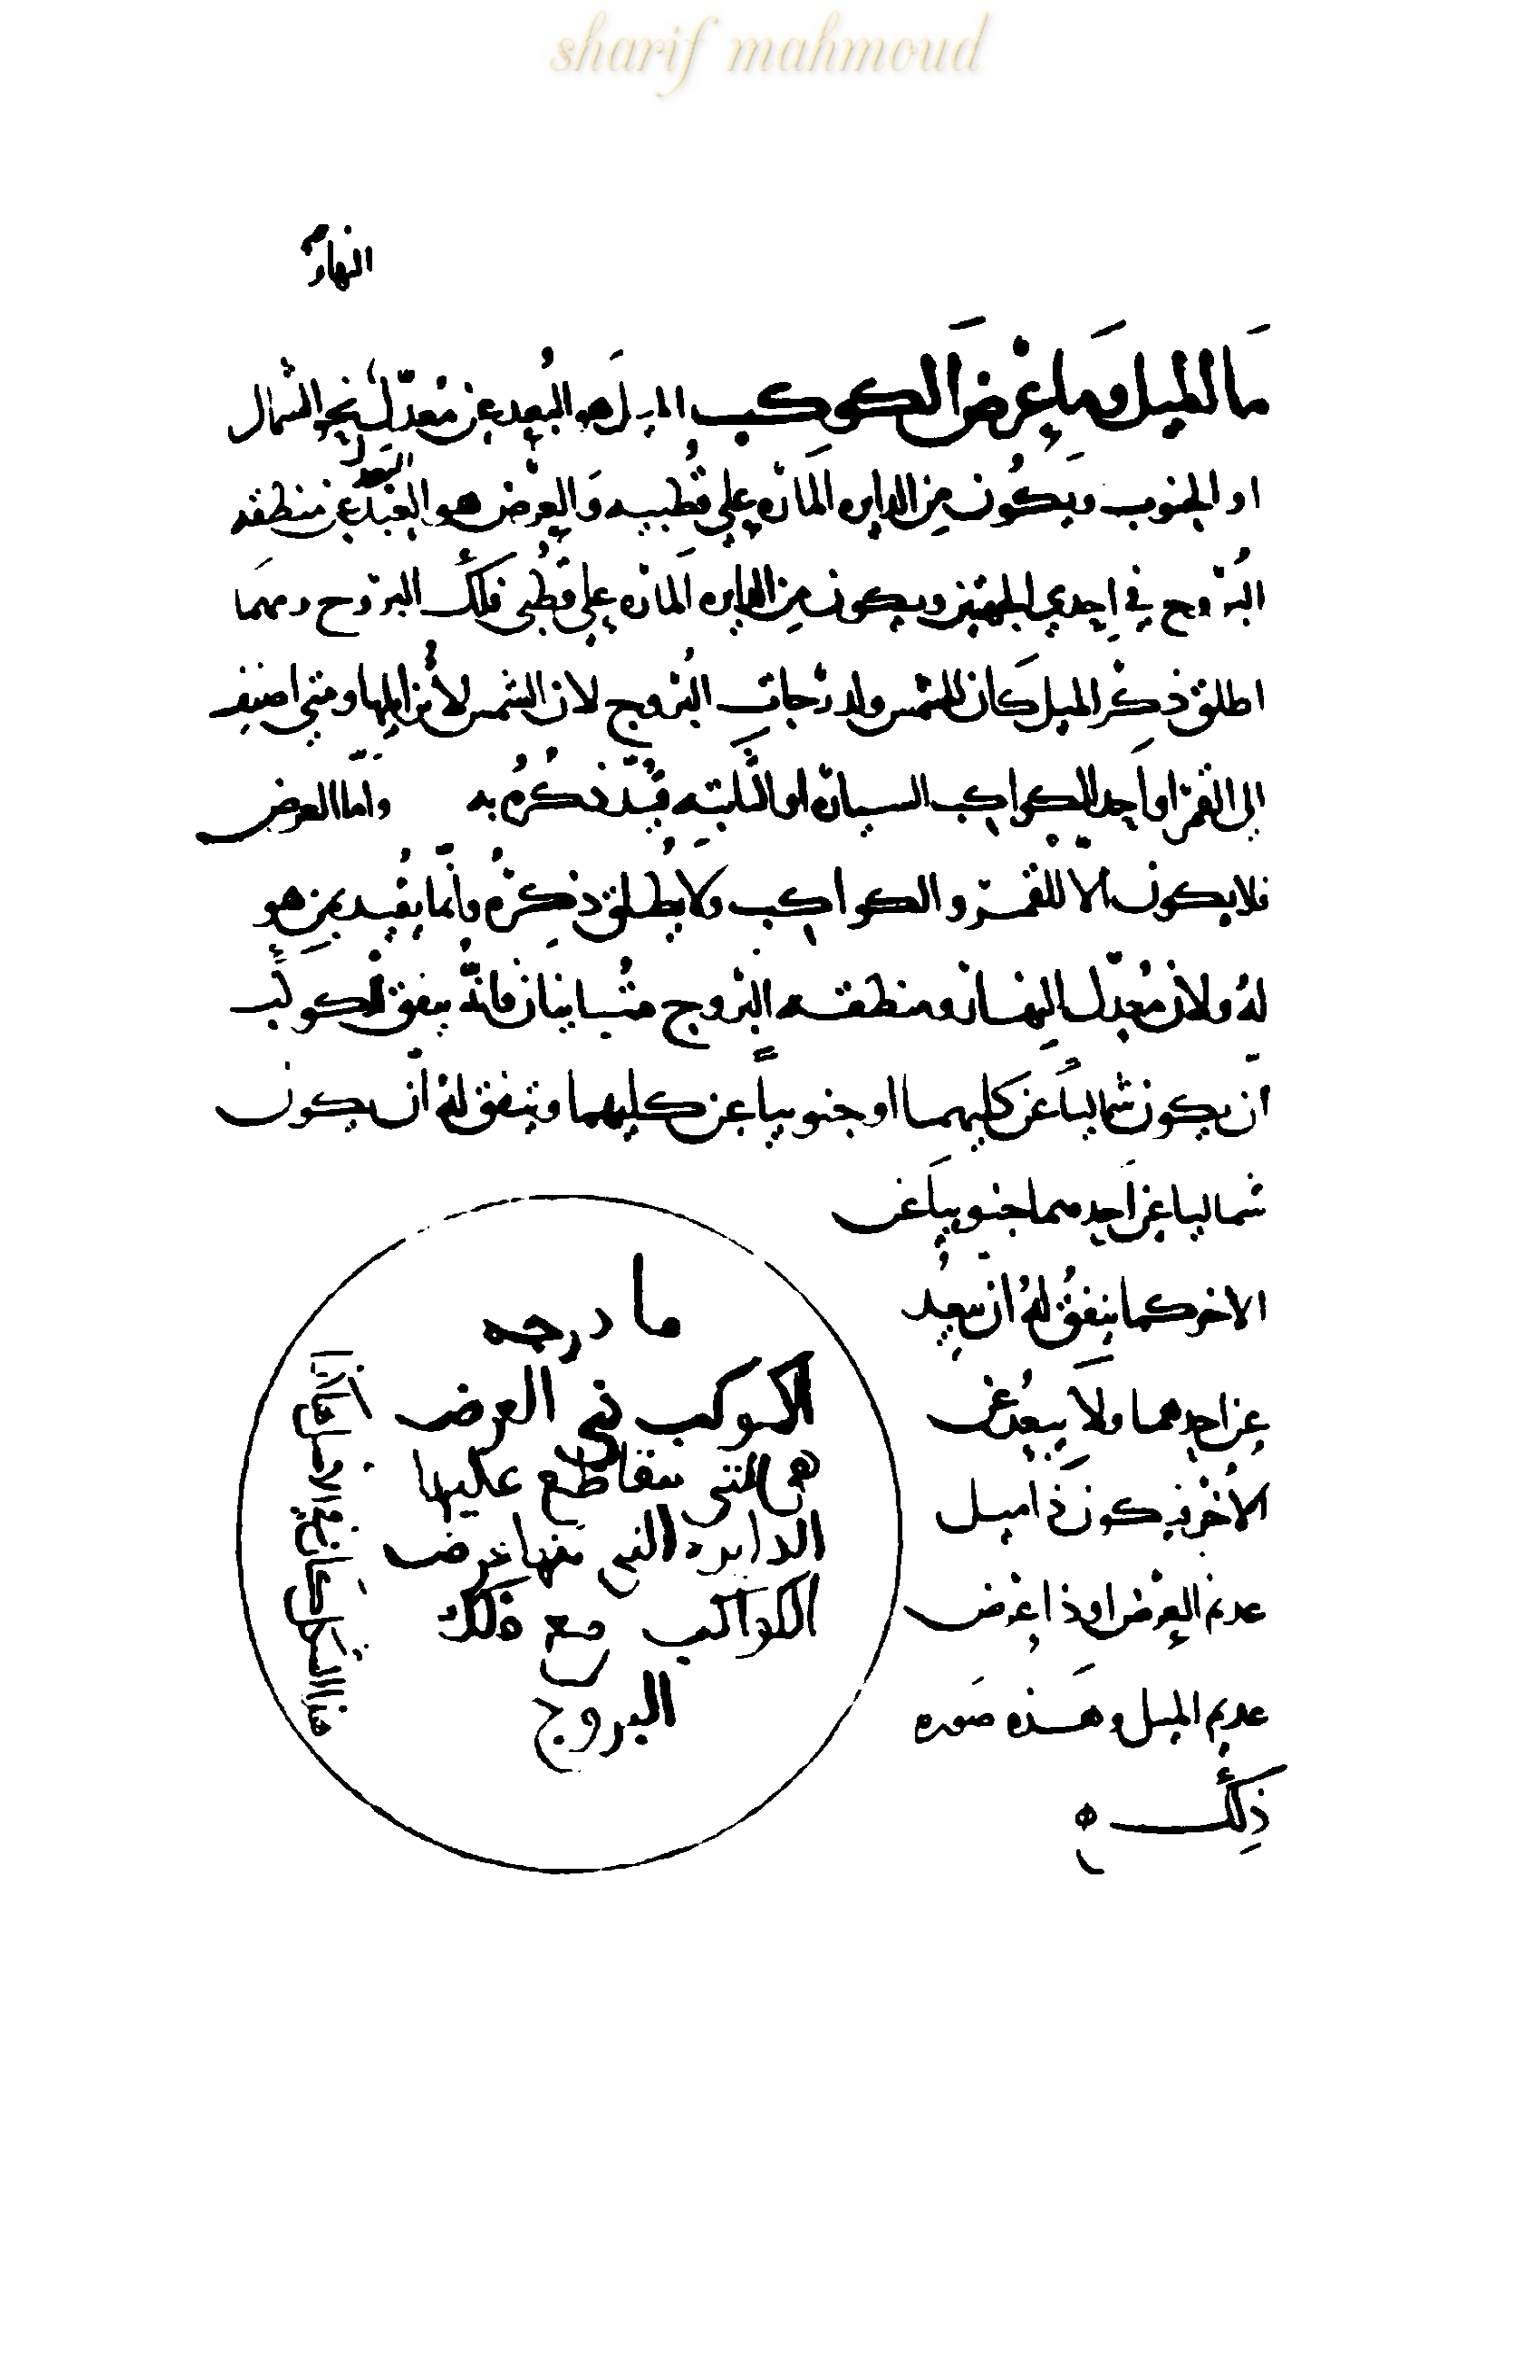 sharif mahmoud
النهار
مَا الميل وما عِرْضَ الكوكب الميل هو البُعد عن مُعدّل نحو الشمال
او الجنوب ويكُون مِن الدايره المارّه على قُطبيه وَالعرْض هو البعد عن منطقه
البعد
البُروج في اِحدى الجهتين ويكون مِن الدايره المارّه على قُطبي فلك البروج ومهما
اطلق ذكر الميل كان للشمس ولدرجات البُروج لان الشمس لا تزايلها ومتى اضيف
الى القمر او احد الكواكب السياره او الثابته قُيّد ذكرُه به واما العرض
فلا يكون الا للقمر والكواكب ولا يُطلق ذِكرُه وانّما يُقيد بمن هو
لهُ ولان مُعدّل النهار ومنطقه البروج متُباينان فانّهُ يتفق لكوكب
انّ يكون شمالياً عن كليهما او جنوبياً عن كليهما ويتفق لهُ انّ يكون
شماليا عن اَحدهما جنوبياً عن
الاخر كما يتفقُ لهُ انّ يبعُد
عن احدهما ولا يبعُد عن
الاُخر فيكون ذا ميل
عديم العرْض او ذا عِرض
عديم الميل وهذه صَوره
ذلِك ه
ما درجه
الكوكب في العرض
هي التي تتقاطع عليها
الدايره التي منها عرض
الكواكب مع فلك
البروج
هذا الشكل كان في الاصل هكذا